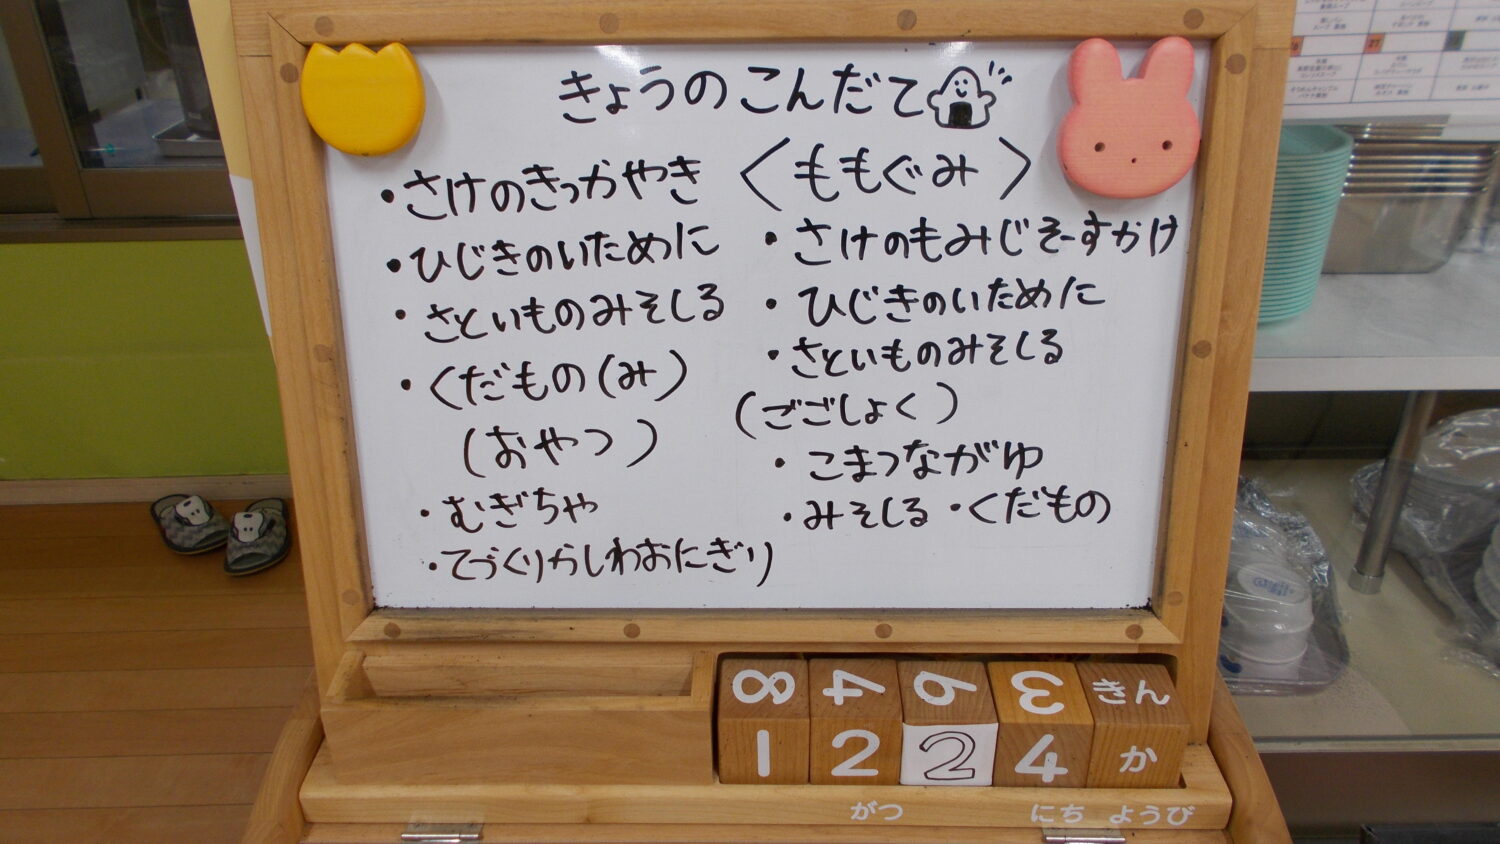 きょうのこんだて
・さけのきっかやき
・ひじきのいために
・さといものみそしる
・くだもの(み)
(おやつ)
・むぎちゃ
・てづくりかしわおにぎり
〈ももぐみ〉
・さけのもみじそーすかけ
・ひじきのいために
・さといものみそしる
(ごごしょく)
・こまつながゆ
・みそしる・くだもの
8 4 6 3 きん
1 2 2 4 か
がつ にち ようび